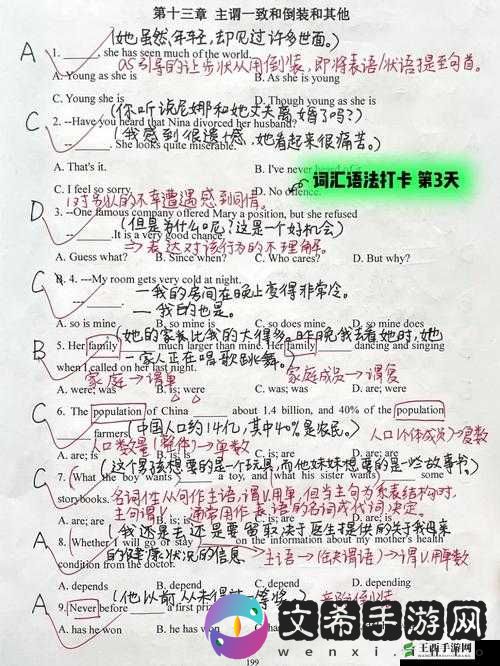 第十三章 主谓一致和倒装和其他
(她虽然年轻,却见过许多世面。)
A 1. ____, she has seen much of the world.
as引导的让步状从用倒装,即将表语/状语提至句首。
A. Young as she is B. As she is young
C. Young she is D. Though young as she is
(你听说尼娜和她丈夫离婚了吗?)
C 2. --Have you heard that Nina divorced her husband?
(我感到很遗憾,她看起来很痛苦。)
--____. She looks quite miserable.
A. That's it. B. I've never
C. I feel so sorry. D. No offence.
词汇语法打卡 第3天
对别人的不幸遭遇感到同情。
D 3. --One famous company offered Mary a position, but she refused
(但是为什么呢?这是一个好机会)
____. It is a very good chance.
⇒表达对该行为的不理解。
A. Guess what? B. Since when? C. Who cares? D. But why?
C 4. ---My room gets very cold at night.
—我的房间在晚上变得非常冷。
—我的也是。
A. so is mine B. so mine is C. so does mine D. so mine does
(她的家族比我的大得多。昨晚我去看她时,她
B 5. Her family ____ much larger than mine. Her family ____ dancing and singing
一家人正在唱歌跳舞。
when I called on her last night.
家庭→谓单 家庭成员→谓复
A. were; was B. is; were C. was; was D. are; were
C 6. The population of China ____ about 1.4 billion, and 40% of the population
____ farmers. (中国人口约14亿,其中40%是农民。)
人口数量(整体)→单数 人口(个体成员)→复数
A. are; is B. is; is
(这个男孩想要的是一个玩具,而他妹妹想要的是一些故事书。)
C 7. (What the boy wants) ____ a toy, and (what his sister wants) ____ some
storybooks. 名词性从句作主语,谓V.用单,但当主句为系表结构时,
主句谓V.通常用作表语的名词或代词决定。
A. are; are B. is; is
(我还是去还是要留取决于医生提供的关于我母亲
A 8. (Whether I will go or stay) ____ on the information about my mother's health
的健康状况的信息
condition from the doctor. 主语→(缺谓语)→谓V.用单数
A. depends B. depend
(他以前从未得过一等奖。)
A 9. Never before ____ a first
A. has he won B. he has won
文希手游网
wenxi
主西手游网
199